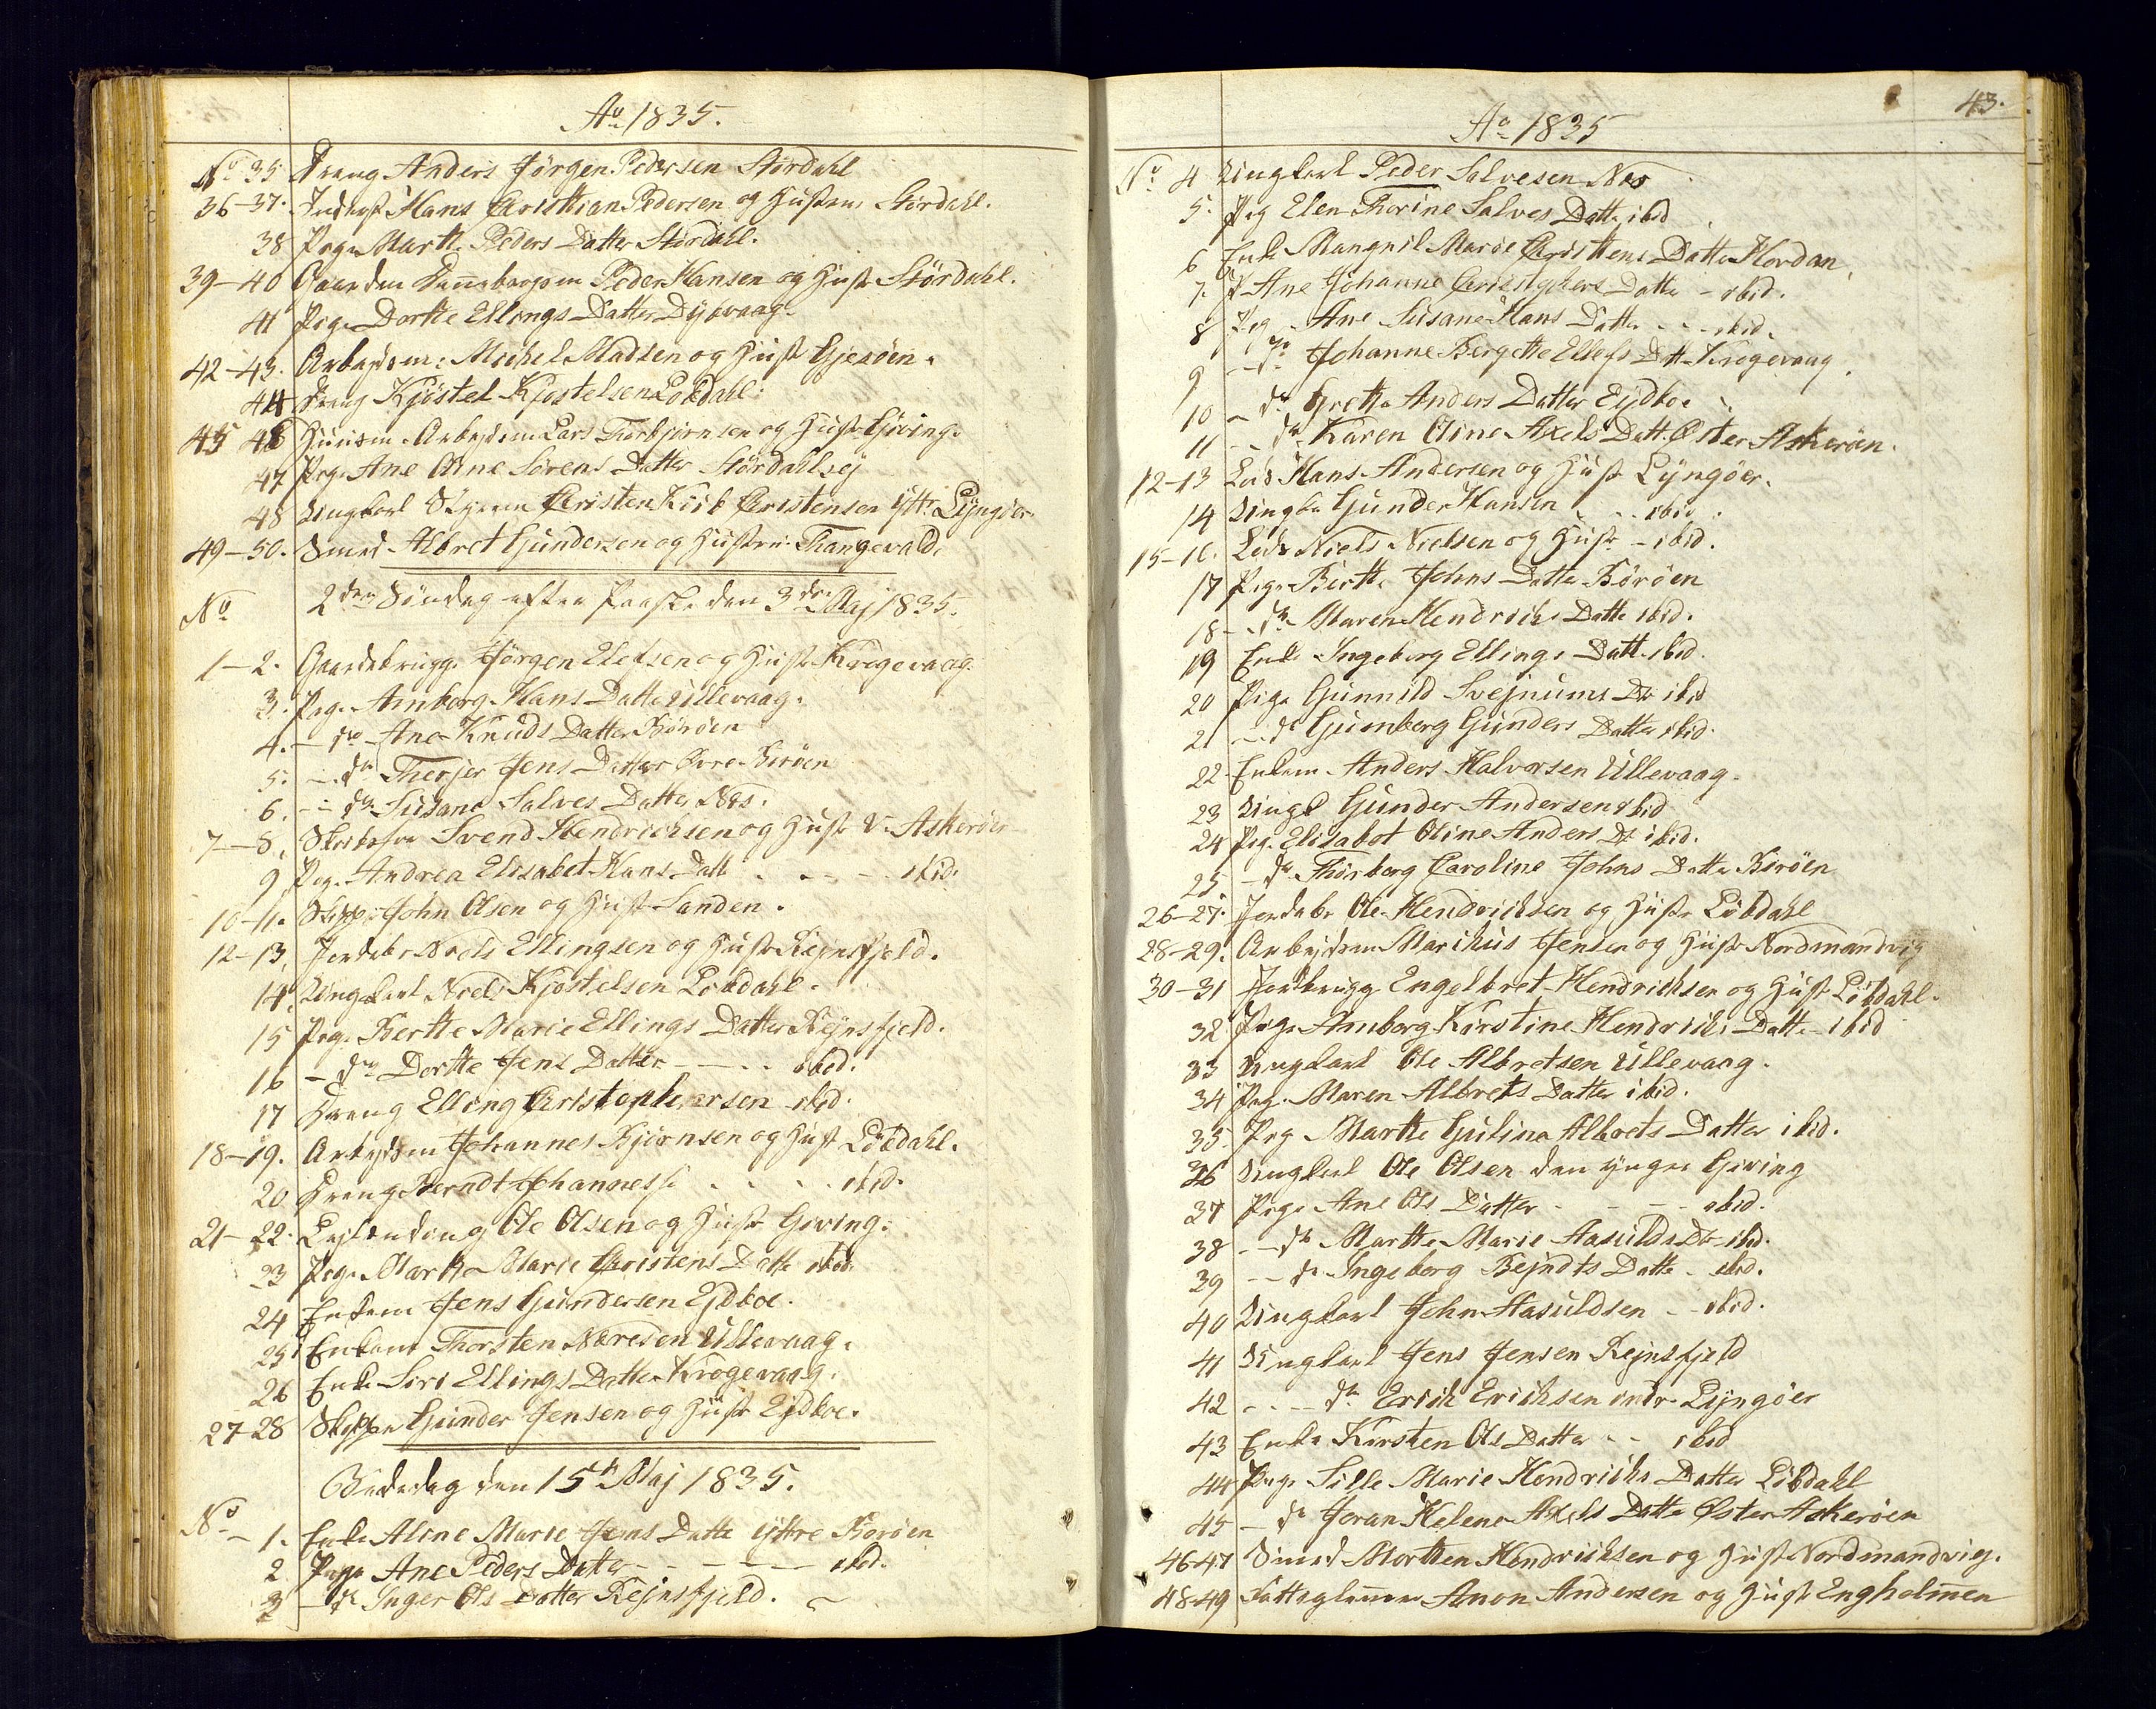 Ao 1835.
No 35 Dreng Anders Jörgen Pedersen Stördahl
36-37. Inderst Hans Christian Pedersen og Hustrue Stördahl.
38 Pige Marthe Peders Datter Stördahl.
39-40 Peder Hansen og Hustr Stördahl.
41 Pige Dorthe Ellings Datter Dybvaag.
42-43. Arbejdsm: Michel Madsen og Hustr Gjesöen.
44 Dreng Kjöstel Kjostelsen Lökdahl:
45 46 Huusm. Arbejdsm Lars Thorbjörnsen og Hustr Giving.
47 Pige Ane Oline Sörens Datter Stördahlsej
48 Ungkarl Christen Kiib Christensen Ytt: Lyngöer
49-50. Smed Albret Gundersen og Hustrue Thangevald.
No 2den Söndag efter Paaske den 3die Maj 1835.
1-2. Gaardebrugger Jörgen Elefsen og Hustr Krogevaag.
3. Pige Amborg Hans Datter Ullevaag.
4. - do Ane Knuds Datter Böröen
5. - do Therjer Jens Datter Övre Böröen
6. - do Susane Salves Datter Næs.
7-8. Svend Hendrichsen og Hustr V. Askeröen
9 Pige Andrea Elisabet Hans Datt - - - ibid.
10-11. Skipper John Olsen og Hustr Sanden.
12-13. Jordebr Niels Ellingsen og Hustr Rejnsfjeld.
14. Ungkarl Niels Kjöstelsen Lökdahl.
15 Pige Berthe Marie Ellings Datter Rejnsfjeld.
16 - do Dorthe Jens Datter - - - ibid.
17 Dreng Elling Christophersen ibid.
18-19. Arbejdsm Johannes Björnsen og Hust Lökdahl.
20 Dreng Berndt Johannes. - - - ibid.
21-22. Lejlænding Ole Olsen og Hustr Giving.
23 Pige Marthe Marie Christens Datte ibid.
24 Enkem Jens Gundersen Ejdboe.
25 Enkem Thorsten Ullevaag.
26 Enke Siri Ellings Datter Krogevaag.
27-28 Skipper Gunder Jensen og Hustr Eidboe.
Bededag den 15de Maj 1835.
No - 1. Enke Aline Marie Jens Datte Yttre Böröen
2. Pige Ane Peders Datter - - - ibid.
3 - do Inger Ols Datter Rejnsfjeld.
43.
Ao 1835
No 4 Ungkarl Peder Salvesen Næs
5. Pig Elen Thorine Salves Datte ibid
6 Enke Mangnil Marie Christens Datte Hordan.
7. P Ane Johanne Datte - ibid.
8 Pig Ane Susane Hans Datte - - ibid.
9 - do Johanne Bergethe Ellefs Dtt Krogevaag.
10 - do Grethe Anders Datter Eydboe
11 - do Karen Oline Axels Datt. Öster Askeröen.
12-13 Lods Hans Andersen og Hustr Lyngöer.
14 Ungka Gunder Hansen - - ibid.
15-16. Lods Niels Nielsen og Hustr - ibid.
17 Pige Birthe Johns Datte Böröen
18 - do Maren Hendrichs Datte ibid.
19 Enke Ingeborg Ellings Datt ibid.
20 Pige Gunnild Svejnums Dtr ibid
21 - do Gumborg Gunders Datter ibid.
22 Enkem Anders Halvorsen Ullevaag.
23 Ungk Gunder Andersen ibid
24 Pig. Elisabet Oline Anders Dtr ibid.
25 - do Thorborg Caroline Johns Datte Böröen
26-27. Jordebr Ole Hendrichsen og Hustr Lökdahl
28-29. Arbejdsm Marikus Jensen og Hustr Nordmandvig
30-31 Jordbrugg Engelbret Hendrichsen og Hust Lökdahl.
32 Pige Amborg Kirstine Hendrichs Datte - ibid
33 Ungkarl Ole Albretsen Ullevaag.
34 Pig. Maren Albrets Datter ibid.
35. Pig Marthe Gulina Albrets Datter ibid.
36 Ungkarl Ole Olsen den yngre Giving
37 Pige Ane Ols Datter - - - ibid.
38 - do Marthe Marie Aasulds Dtr ibid.
39 - do Ingeborg Bejndts Datte - ibid.
40 Ungkarl John Aasuldsen - ibid.
41 Ungkarl Jens Jensen Rejnsfjeld
42 - - do Erich Erichsen indr. Lyngöer
43 Enke Kirsten Ols Datter - - ibid
44 Pige Sille Marie Hendrichs Datter Lökdahl
45 - do Joran Helene Axels Datte Öster Askeröen
46-47 Smed Morthen Hendrichsen og Hustr Nordmandvig.
48-49 Anon Andersen og Hustr Engholmen